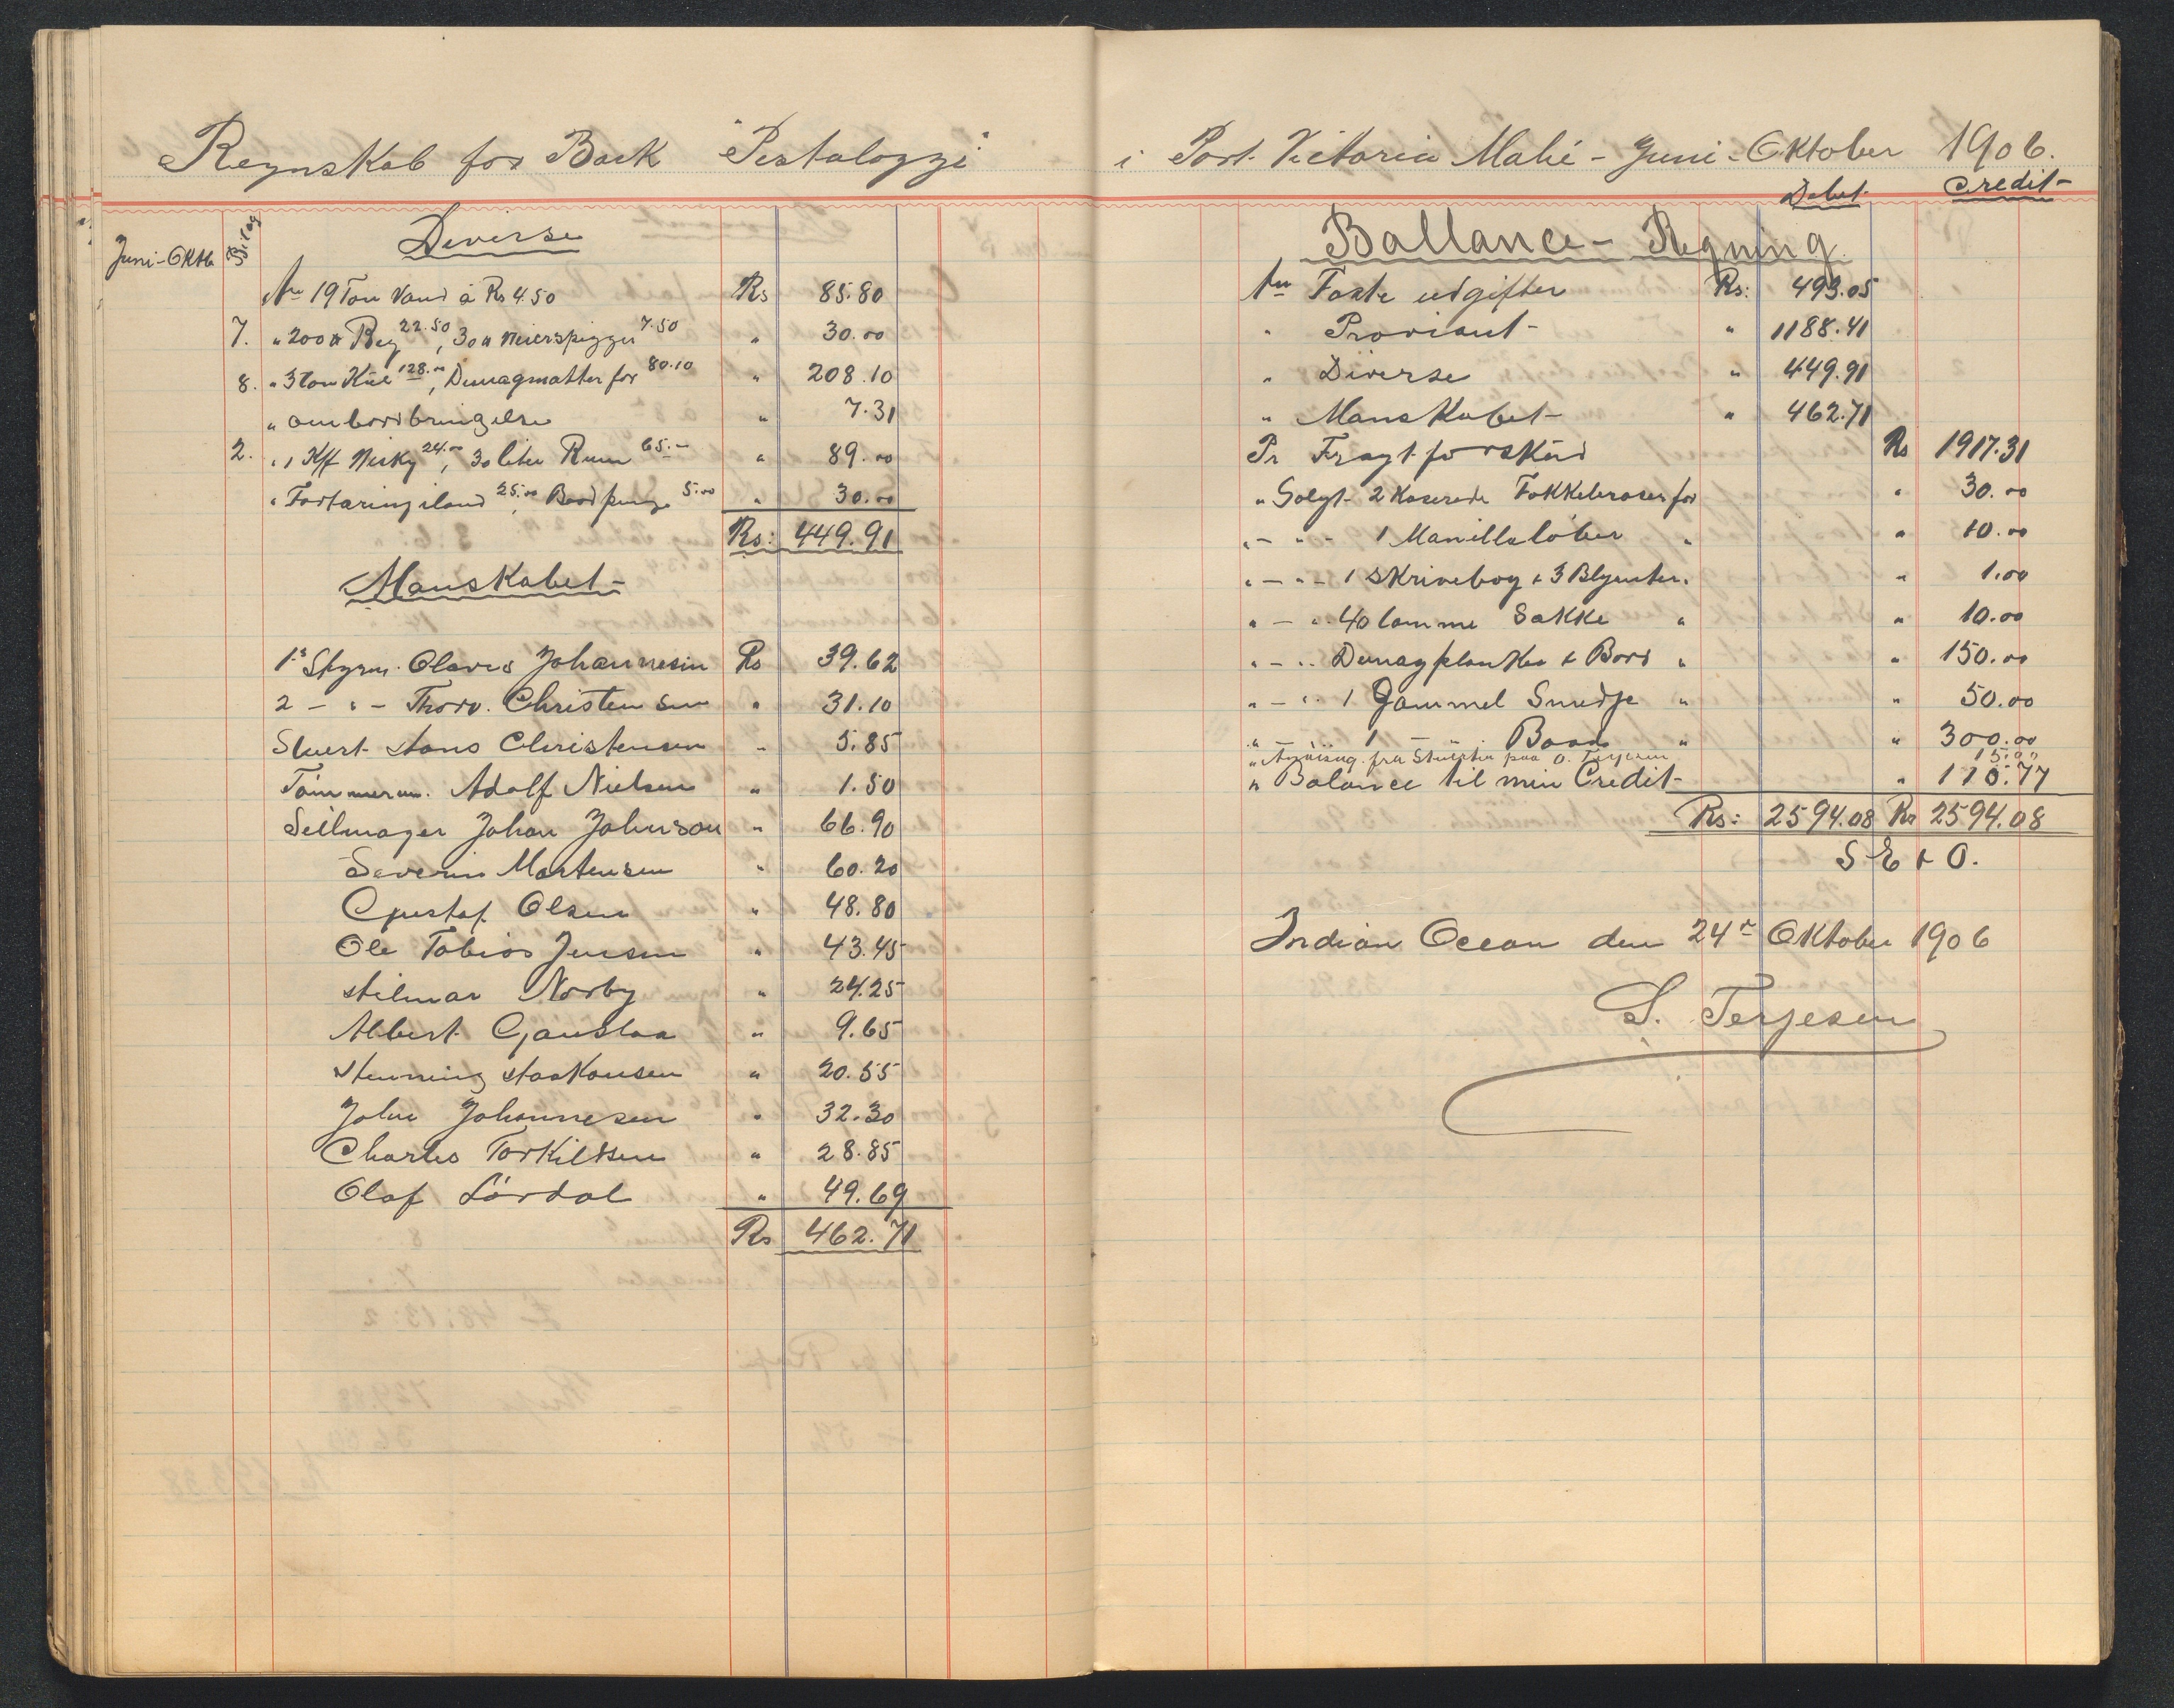 Regnskab for Bark "Pestalozzi"
Juni-Oktb
Bilag
Diverse
An 19 Ton Vand à Rs 4.50 Rs 85.80
7. " 200 lb Beg 22.50, 30 lb Meierspigger 7.50 " 30.00
8. " 3 Ton Kul 128.00, Dunagmatter for 80.10 " 208.10
" ombordbringelse " 7.31
2. " 1 K/f Wisky 24.00, 30 liter Rum 65.- " 89.00
" Fortaring iland 25.00, Baadpenge 5.00 " 30.00
Rs: 449.91
Manskabet-
1s Styrm. Olavus Johannesen Rs 39.62
2 - " - Thorv. Christensen " 31.10
Stuert Hans Christensen " 5.85
Tömmerm. Adolf Nielsen " 1.50
Seilmager Johan Johnson " 66.90
Severin Martensen " 60.20
Gustaf Olsen " 48.80
Ole Tobias Jensen " 43.45
Hilmar Norby " 24.25
Albert Gauslaa " 9.65
Henning Haakonsen " 20.55
John Johannesen " 32.30
Charles Torkilsen " 28.85
Olaf Lördal " 49.69
Rs 462.71
i Port. Victoria Mahé - Juni-Oktober 1906.
Debet Credit-
Ballance- Regning
An Faste udgifter Rs: 493.05
" Proviant- " 1188.41
" Diverse " 449.91
" Manskabet- " 462.71
Pr Fragt forskud Rs 1917.31
" Solgt- 2 Kaserede Fokkebraser for " 30.00
" - " - 1 Manillalöber " " 10.00
" - " - 1 Skrivebog & 3 Blyanter " " 1.00
" - " - 40 lomme Sakke " " 10.00
" - " - Dunagplanker & Bord " " 150.00
" - " - 1 Gammel Smedje " " 50.00
" - " - 1 - " - Baad " " 300.00
" Anvisng. fra Stuerten paa O. Terjesen 15.00
" Balance til min Credit- " 110.77
Rs: 2594.08 Rs 2594.08
S E & O.
Indian Ocean den 24de Oktober 1906
S. Terjesen